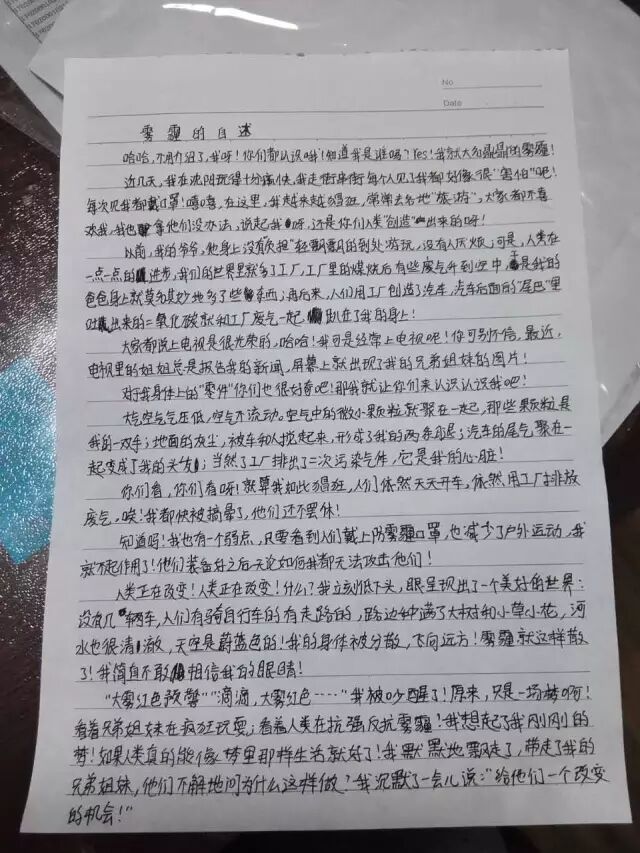 No
Date
雾霾的自述
哈哈,不用介绍了,我呀!你们都认识哦!知道我是谁吗?Yes!我就大名鼎鼎的雾霾!
近几天,我在沈阳玩得十分痛快,我走街串街每个人见了我都好像很"害怕"呢!
每次见我都戴口罩!嘻嘻,在这里,我越来越猖狂,常常去各地"旅游",大家都不喜
欢我,我也拿他们没办法,说起我呀,还是你们人类"创造"出来的呀!
以前,我的爷爷,他身上没有负担"轻飘飘的到处游玩,没有人厌烦,可是,人类在
一点一点的进步,我们的世界里就多了工厂,工厂里的煤烧后有些废气升到空中,于是我的
爸爸身上就莫名其妙地多了些东西;再后来,人们用工厂创造了汽车,汽车后面的"尾巴"里
吐出来的二氧化碳就和工厂废气一起趴在了我的身上!
大家都说上电视是很光荣的,哈哈!我可是经常上电视呢!你可别不信,最近,
电视里的姐姐总是报告我的新闻,屏幕上就出现了我的兄弟姐妹的图片!
对于我身体上的"零件"你们也很好奇吧!那我就让你们来认识认识我吧!
大气空气气压低,空气不流动。空气中的微小颗粒就聚在一起,那些颗粒是
我的一双手;地面的灰尘,被车和人搅起来,形成了我的两条腿;汽车的尾气聚在一
起变成了我的头发;当然了工厂排出了二次污染气体,它是我的心脏!
你们看,你们看呀!就算我如此猖狂,人们依然天天开车,依然用工厂排放
废气,唉!我都快被搞晕了,他们还不罢休!
知道吗!我也有个弱点,只要看到人们戴上防雾霾口罩,也减少了户外运动,我
就不起作用了!他们装备好之后无论如何我都无法攻击他们!
人类正在改变!人类正在改变!什么?我立刻低下头,眼里呈现出了一个美好的世界:
没有几辆车,人们有骑自行车的有走路的,路边种满了大树和小草小花,河
水也很清澈,天空是蔚蓝色的!我的身体被分散,飞向远方!雾霾就这样散
了!我简直不敢相信我的眼睛!
"大雾红色预警""滴滴,大雾红色……"我被吵醒了!原来,只是一场梦啊!
看着兄弟姐妹在疯狂玩耍;看着人类在抗强反抗雾霾!我想起了我刚刚的
梦!如果人类真的能像梦里那样生活就好了!我默默地飘走了,带走了我的
兄弟姐妹,他们不解地问为什么这样做?我沉默了一会儿说:"给他们一个改变
的机会!"